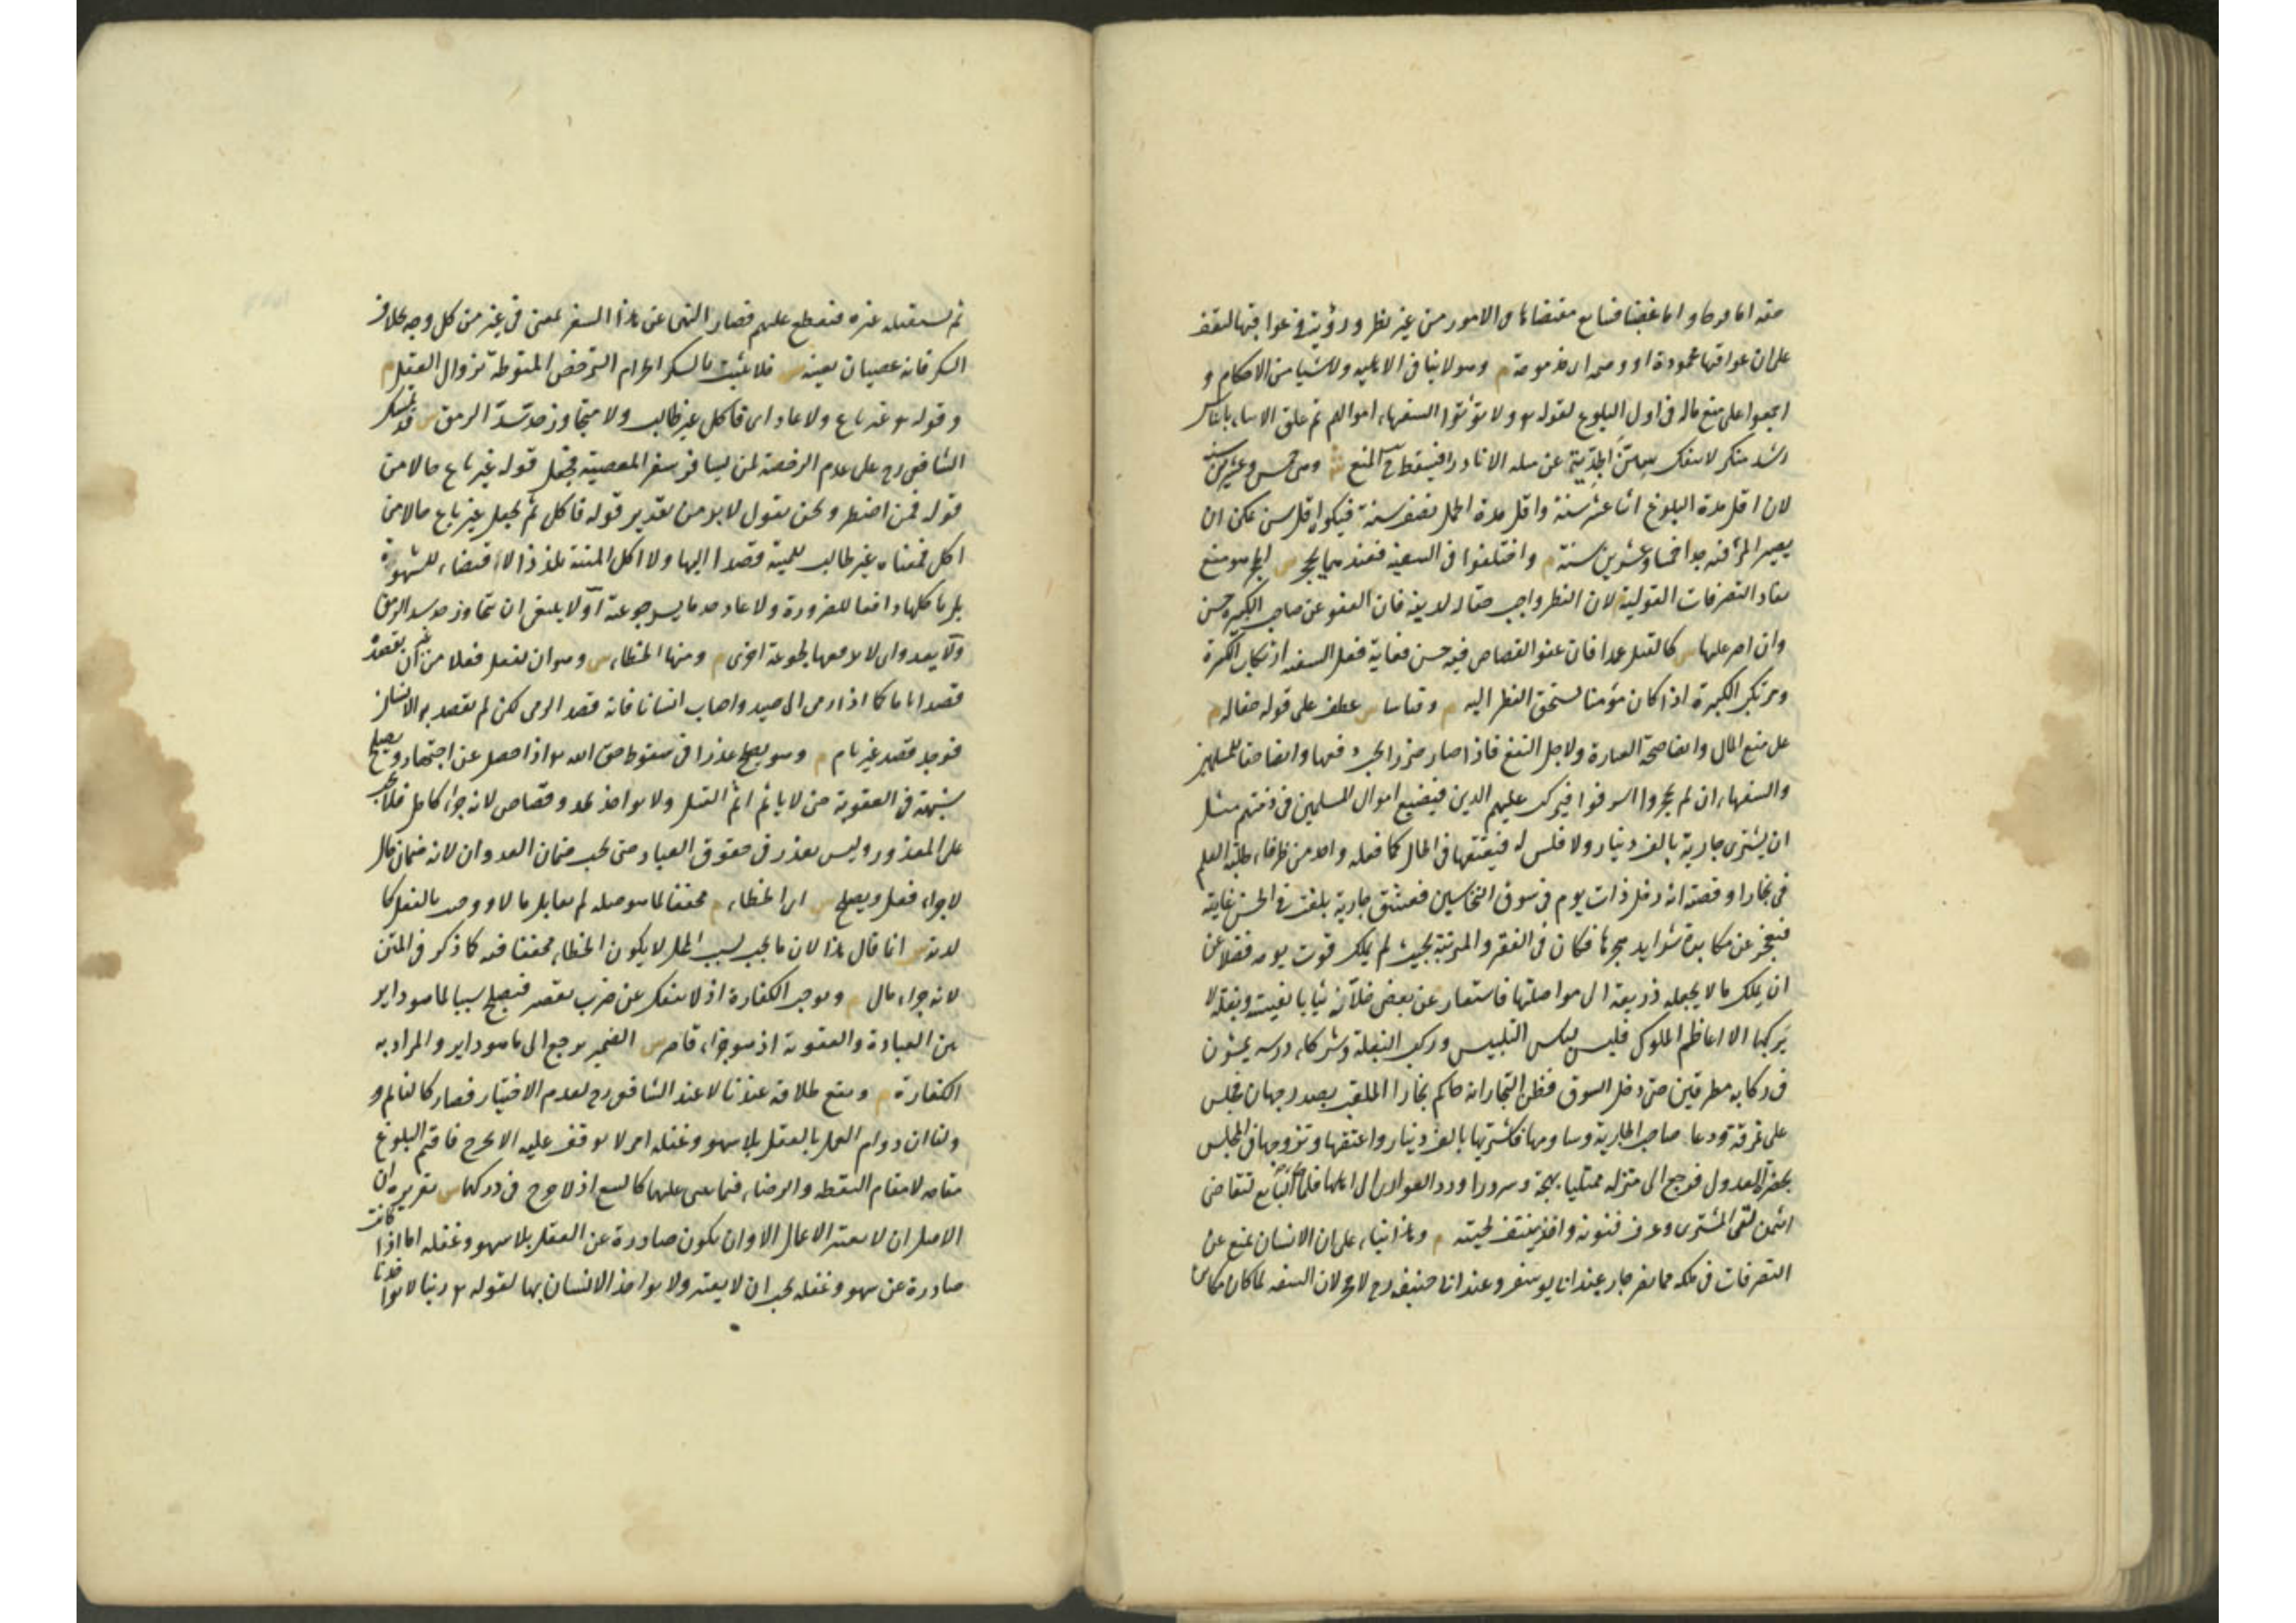 اما فرحا و اما غضبا فيتابع مقتضاها فى الامور من غير نظر و روية فى عواقبها ليقف
على ان عواقبها محمودة او وخيمة اى مذمومة م وهو لا ينافى الاهلية ولا شيئا من الاحكام و
اجمعوا على منع ماله فى اول البلوغ لقوله تع ولا تؤتوا السفهاء اموالكم ثم علق الايتاء بايناس
رشد منكر لا ينفك سن الجدية عن مثله الا نادرا فيسقط ح المنع ش وهى خمس وعشرين سنة
لان اقل مدة البلوغ اثنا عشر سنة واقل مدة الحمل نصف سنة فيكون اقل سن يمكن ان
يصير المرء فيه جدا خمسا وعشرين سنة م واختلفوا فى السفيه فعندهما يحجر س الحجر هو منع
نفاذ التصرفات القولية لان النظر واجب حقا له لدينه فان العفو عن صاحب الكبيرة حسن
وان اصر عليها س كالقتل عمدا فان عفو القصاص فيه حسن فغاية فعل السفيه ارتكاب الكبيرة
ومرتكب الكبيرة اذا كان مؤمنا يستحق النظر اليه م وقياسا س عطف على قوله حقا له م
على منع المال وايضا صحة العبارة ولاجل النفع فاذا صار ضررا يجب دفعها وايضا حقا للمسلمين
والسفهاء ان لم يحجروا اسرفوا فيركب عليهم الدين فيضيع اموال المسلمين فى ذمتهم مثل
ان يشترى جارية بالف دينار ولا فلس له فيعتقها فى الحال كما فعله واحد من ظرفاء طلبة العلم
فى بخارا وقصته انه دخل ذات يوم فى سوق النخاسين فعشق جارية بلغت فى الحسن غايته
فعجز عن مكابدة شدايد هجرها فكان فى الفقر والمتربة بحيث لم يملك قوت يومه فضلا عن
ان يملك ما لا يجعله ذريعة الى مواصلتها فاستعار عن بعض خلانه ثيابا نفيسة وبغلة لا
يركبها الا اعاظم الملوك فلبس لباس التلبيس وركب البغلة وشركاء درسه يمشون
فى ركابه مطرقين حتى دخل السوق فظن التجار انه حاكم بخارا الملقب بصدر جهان فجلس
على نمرقة ودعا صاحب الجارية وساومها فاشتريها بالف دينار واعتقها وتزوجها فى المجلس
بحضرة العدول فرجع الى منزله ممتليا بهجة وسرورا ورد العوارى الى اهلها فلما جاء البايع لتقاضى
الثمن لقى المشترى وعرف فنونه واخذ ينتف لحيته م وهذا بناء على ان الانسان يمنع عن
التصرفات فى ملكه مما يضر جاره عند ابى يوسف وعند ابى حنيفة رح لا يحجر لان السفه لما كان مكابرة
ثم يستقبله غيره فيقطع عليهم فصار النهى عن هذا السفر لمعنى فى غيره من كل وجه بخلاف
السكر فانه عصيان بعينه س فلا يثبت بالسكر الحرام الترخص المنوطة بزوال العقل م
وقوله تع غير باغ ولا عاد اى فاكل غير طالب ولا متجاوز حد سد الرمق س قد تمسك
الشافعى رح على عدم الرخصة لمن يسافر سفر المعصية فيجعل قوله غير باغ حالا من
قوله فمن اضطر ونحن نقول لا بد من تقدير قوله فاكل ثم نجعل غير باغ حالا من
اكل فمعناه غير طالب للميتة قصدا اليها ولا اكل الميتة تلذذا لا اقتضاء للشهوة
بل ياكلها دافعا للضرورة ولا عاد حد ما يسد جوعته اى لا ينبغى ان يتجاوز حد سد الرمق
ولا يعدو اى لا يرفعها لجوعة اخرى م ومنها الخطاء س وهو ان يفعل فعلا من غير ان يقصده
قصدا تاما كما اذا رمى الى صيد واصاب انسانا فانه قصد الرمى لكن لم يقصد به الانسان
فوجد قصد غير تام م وهو يصلح عذرا فى سقوط حق الله تع اذا حصل عن اجتهاد ويصلح
شبهة فى العقوبة حتى لا ياثم اثم القتل ولا يواخذ بحد وقصاص لانه جزاء كامل فلا يجب
على المعذور وليس بعذر فى حقوق العباد حتى يجب ضمان العدوان لانه ضمان مال
لا جزاء فعل ويصلح س اى الخطاء م مخففا لما هو صلة لم تقابل مالا ووجب بالفعل كا
لدية س انما قال هذا لان ما يجب بسبب المحل لا يكون الخطاء مخففا فيه كما ذكر فى المتن
لانه جزاء مال م ويوجب الكفارة اذ لا ينفك عن ضرب تقصير فيصلح سببا لما هو داير
بين العبادة والعقوبة اذ هو جزاء قاصر س الضمير يرجع الى ما هو داير والمراد به
الكفارة م ويقع طلاقه عندنا لا عند الشافعى رح لعدم الاختيار فصار كالنائم و
ولنا ان دوام العمل بالعقل بلا سهو وغفلة امر لا يوقف عليه الا بحرج فاقيم البلوغ
مقامه لا مقام اليقظة والرضاء فيما يبنى عليهما كالبيع اذ لا حرج فى دركهما س تقريره ان
الاصل ان لا يعتبر الاعمال الا وان يكون صادرة عن العقل بلا سهو وغفلة اما اذا كانت
صادرة عن سهو وغفلة يجب ان لا يعتبر ولا يواخذ الانسان بها لقوله تع ربنا لا تواخذنا